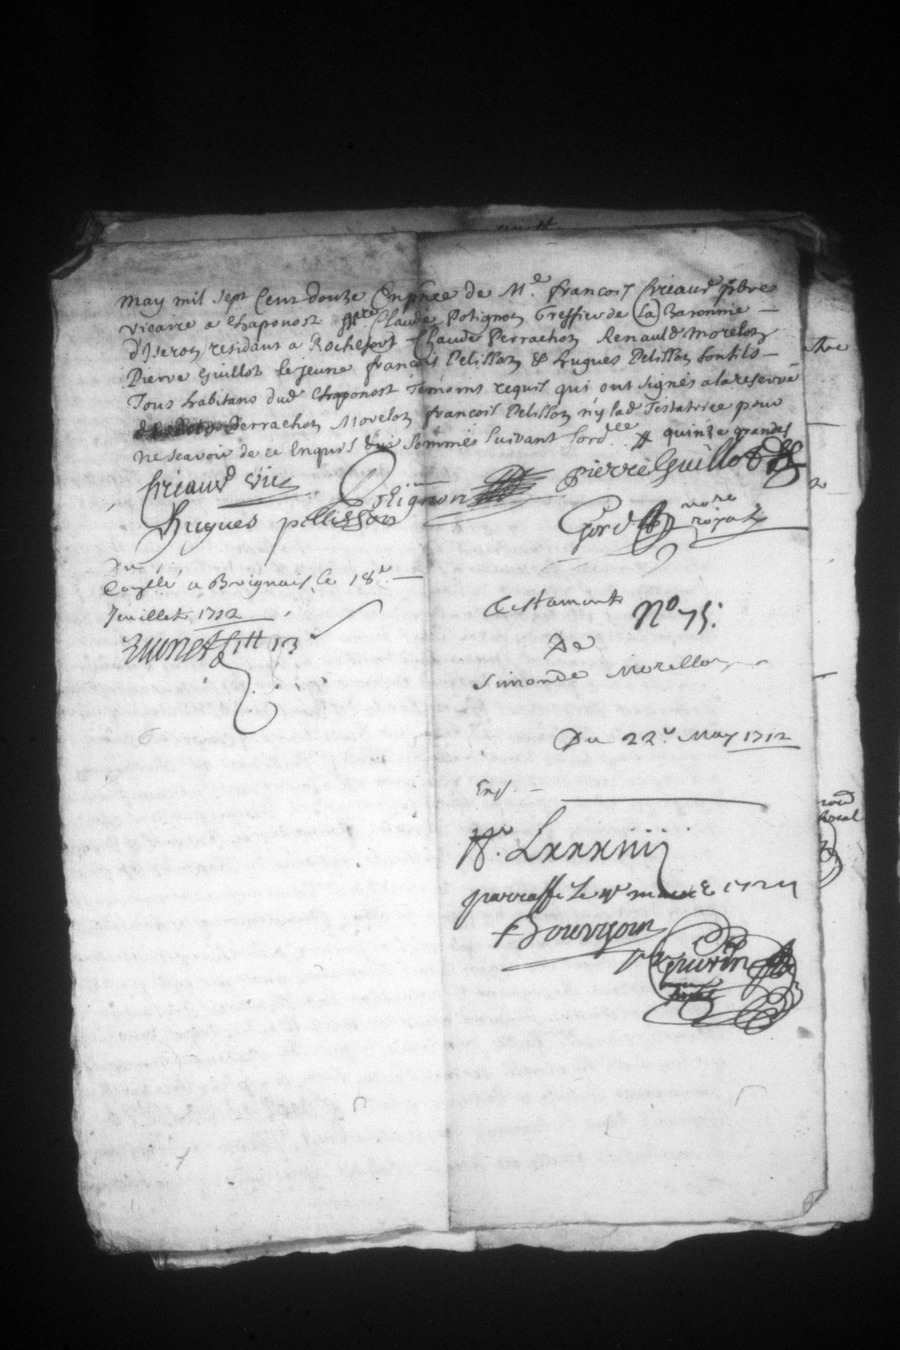 may mil sept Cens douze En pñce de M.e francois Crieaud pbre
vicaire a Chaponost Claude Potignon Greffier de la Baronnie
d'Iseron residant a Rochefort Claude Perrachon Renauld Morellon
Pierre Guillot le jeune francois Pelisson & hugues Pelisson son fils
Tous habitans dud Chaponost Temoins requis qui ont signés a la reserve
Perrachon Morelon francois Pelisson n'y lad Testatrice pour
ne scavoir de ce Enquis & sommés suivant l'ord.ce quinze grandes
Crieaud vic
Potignon
Pierre Guillot
hugues pellisson
not.re
royal
Du
Con.llé a Brignais le 18.e
Jeuillet 1712
Testament N.o 75.
De
Simonde Morellon
Du 22.e May 1712
Exp.
N.o Lxxxiiij
parraffé le
Bourgoin
Guerin